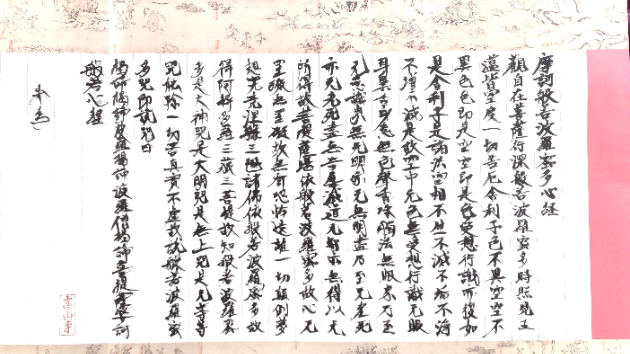 摩訶般若波羅蜜多心経
觀自在菩薩行深般若波羅蜜多時照見五
蘊皆空度一切苦厄舍利子色不異空空不
異色色即是空空即是色受想行識亦復如
是舍利子是諸法空相不生不滅不垢不淨
不增不減是故空中无色無受想行識无眼
耳鼻舌身意无色聲香味觸法無眼界乃至
无意識界無无明亦无無明盡乃至无老死
亦无老死盡無苦集滅道无智亦無得以无
所得故菩提薩埵依般若波羅蜜多故心无
罣礙無罣礙故無有恐怖遠離一切顛倒夢
想究竟涅槃三世諸佛依般若波羅蜜多故
得阿耨多羅三藐三菩提故知般若波羅蜜
多是大神咒是大明咒是無上咒是无等等
咒能除一切苦真實不虛故說般若波羅蜜
多咒即說咒曰
揭諦揭諦波羅揭諦波羅僧揭諦菩提薩婆訶
般若心経